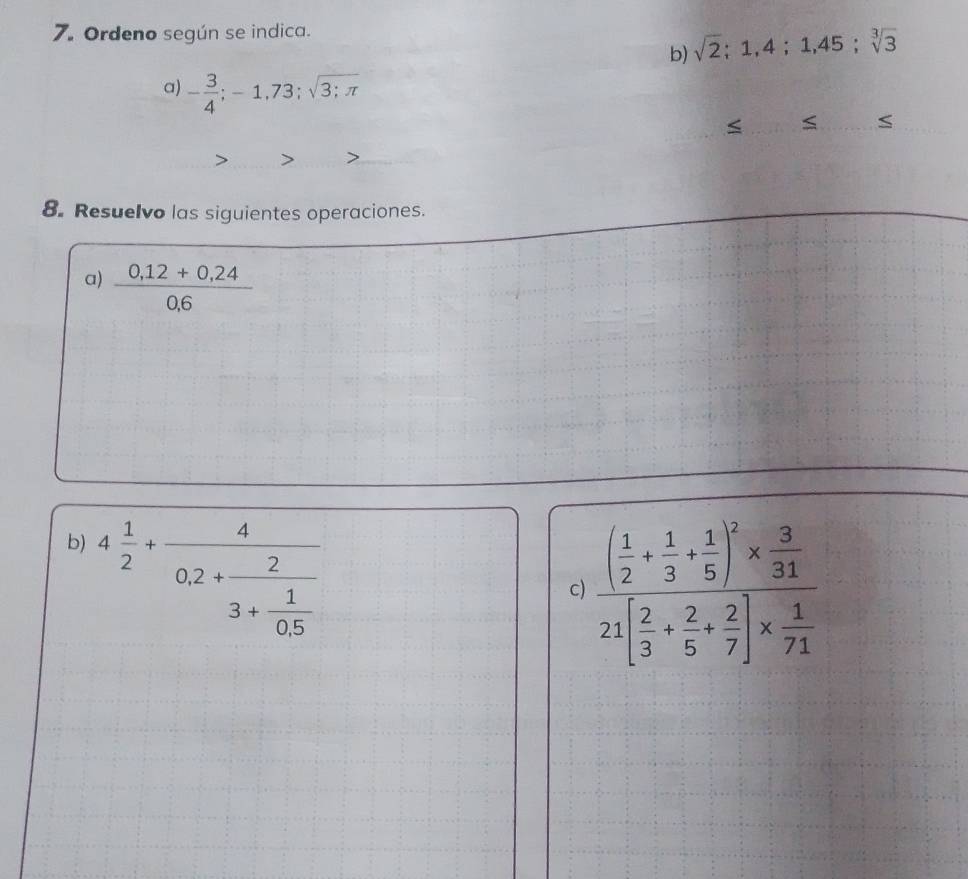 7. Ordeno según se indica.
a) $-\frac{3}{4}; -1,73; \sqrt{3; \pi}$
> > >
b) $\sqrt{2}; 1,4; 1,45; \sqrt[3]{3}$
≤ ≤ ≤
8. Resuelvo las siguientes operaciones.
a) $\frac{0,12 + 0,24}{0,6}$
b) $4\frac{1}{2} + \frac{4}{0,2 + \frac{2}{3 + \frac{1}{0,5}}}$
c) $\frac{\left(\frac{1}{2} + \frac{1}{3} + \frac{1}{5}\right)^2 \times \frac{3}{31}}{21\left[\frac{2}{3} + \frac{2}{5} + \frac{2}{7}\right] \times \frac{1}{71}}$